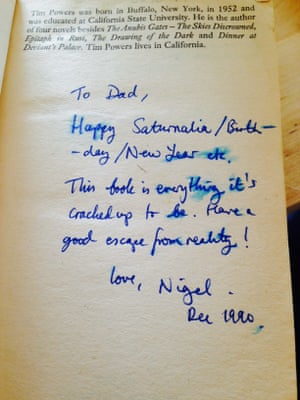 Tim Powers was born in Buffalo, New York, in 1952 and
was educated at California State University. He is the author
of four novels besides The Anubis Gates – The Skies Discrowned,
Epitaph in Rust, The Drawing of the Dark and Dinner at
Deviant's Palace. Tim Powers lives in California.
To Dad,
Happy Saturnalia/Birth-
-day/New Year etc.
This book is everything it's
cracked up to be. Have a
good escape from reality!
love, Nigel.
Dec 1990.